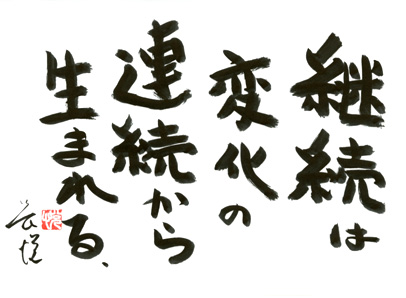 継続は
変化の
連続から
生まれる、